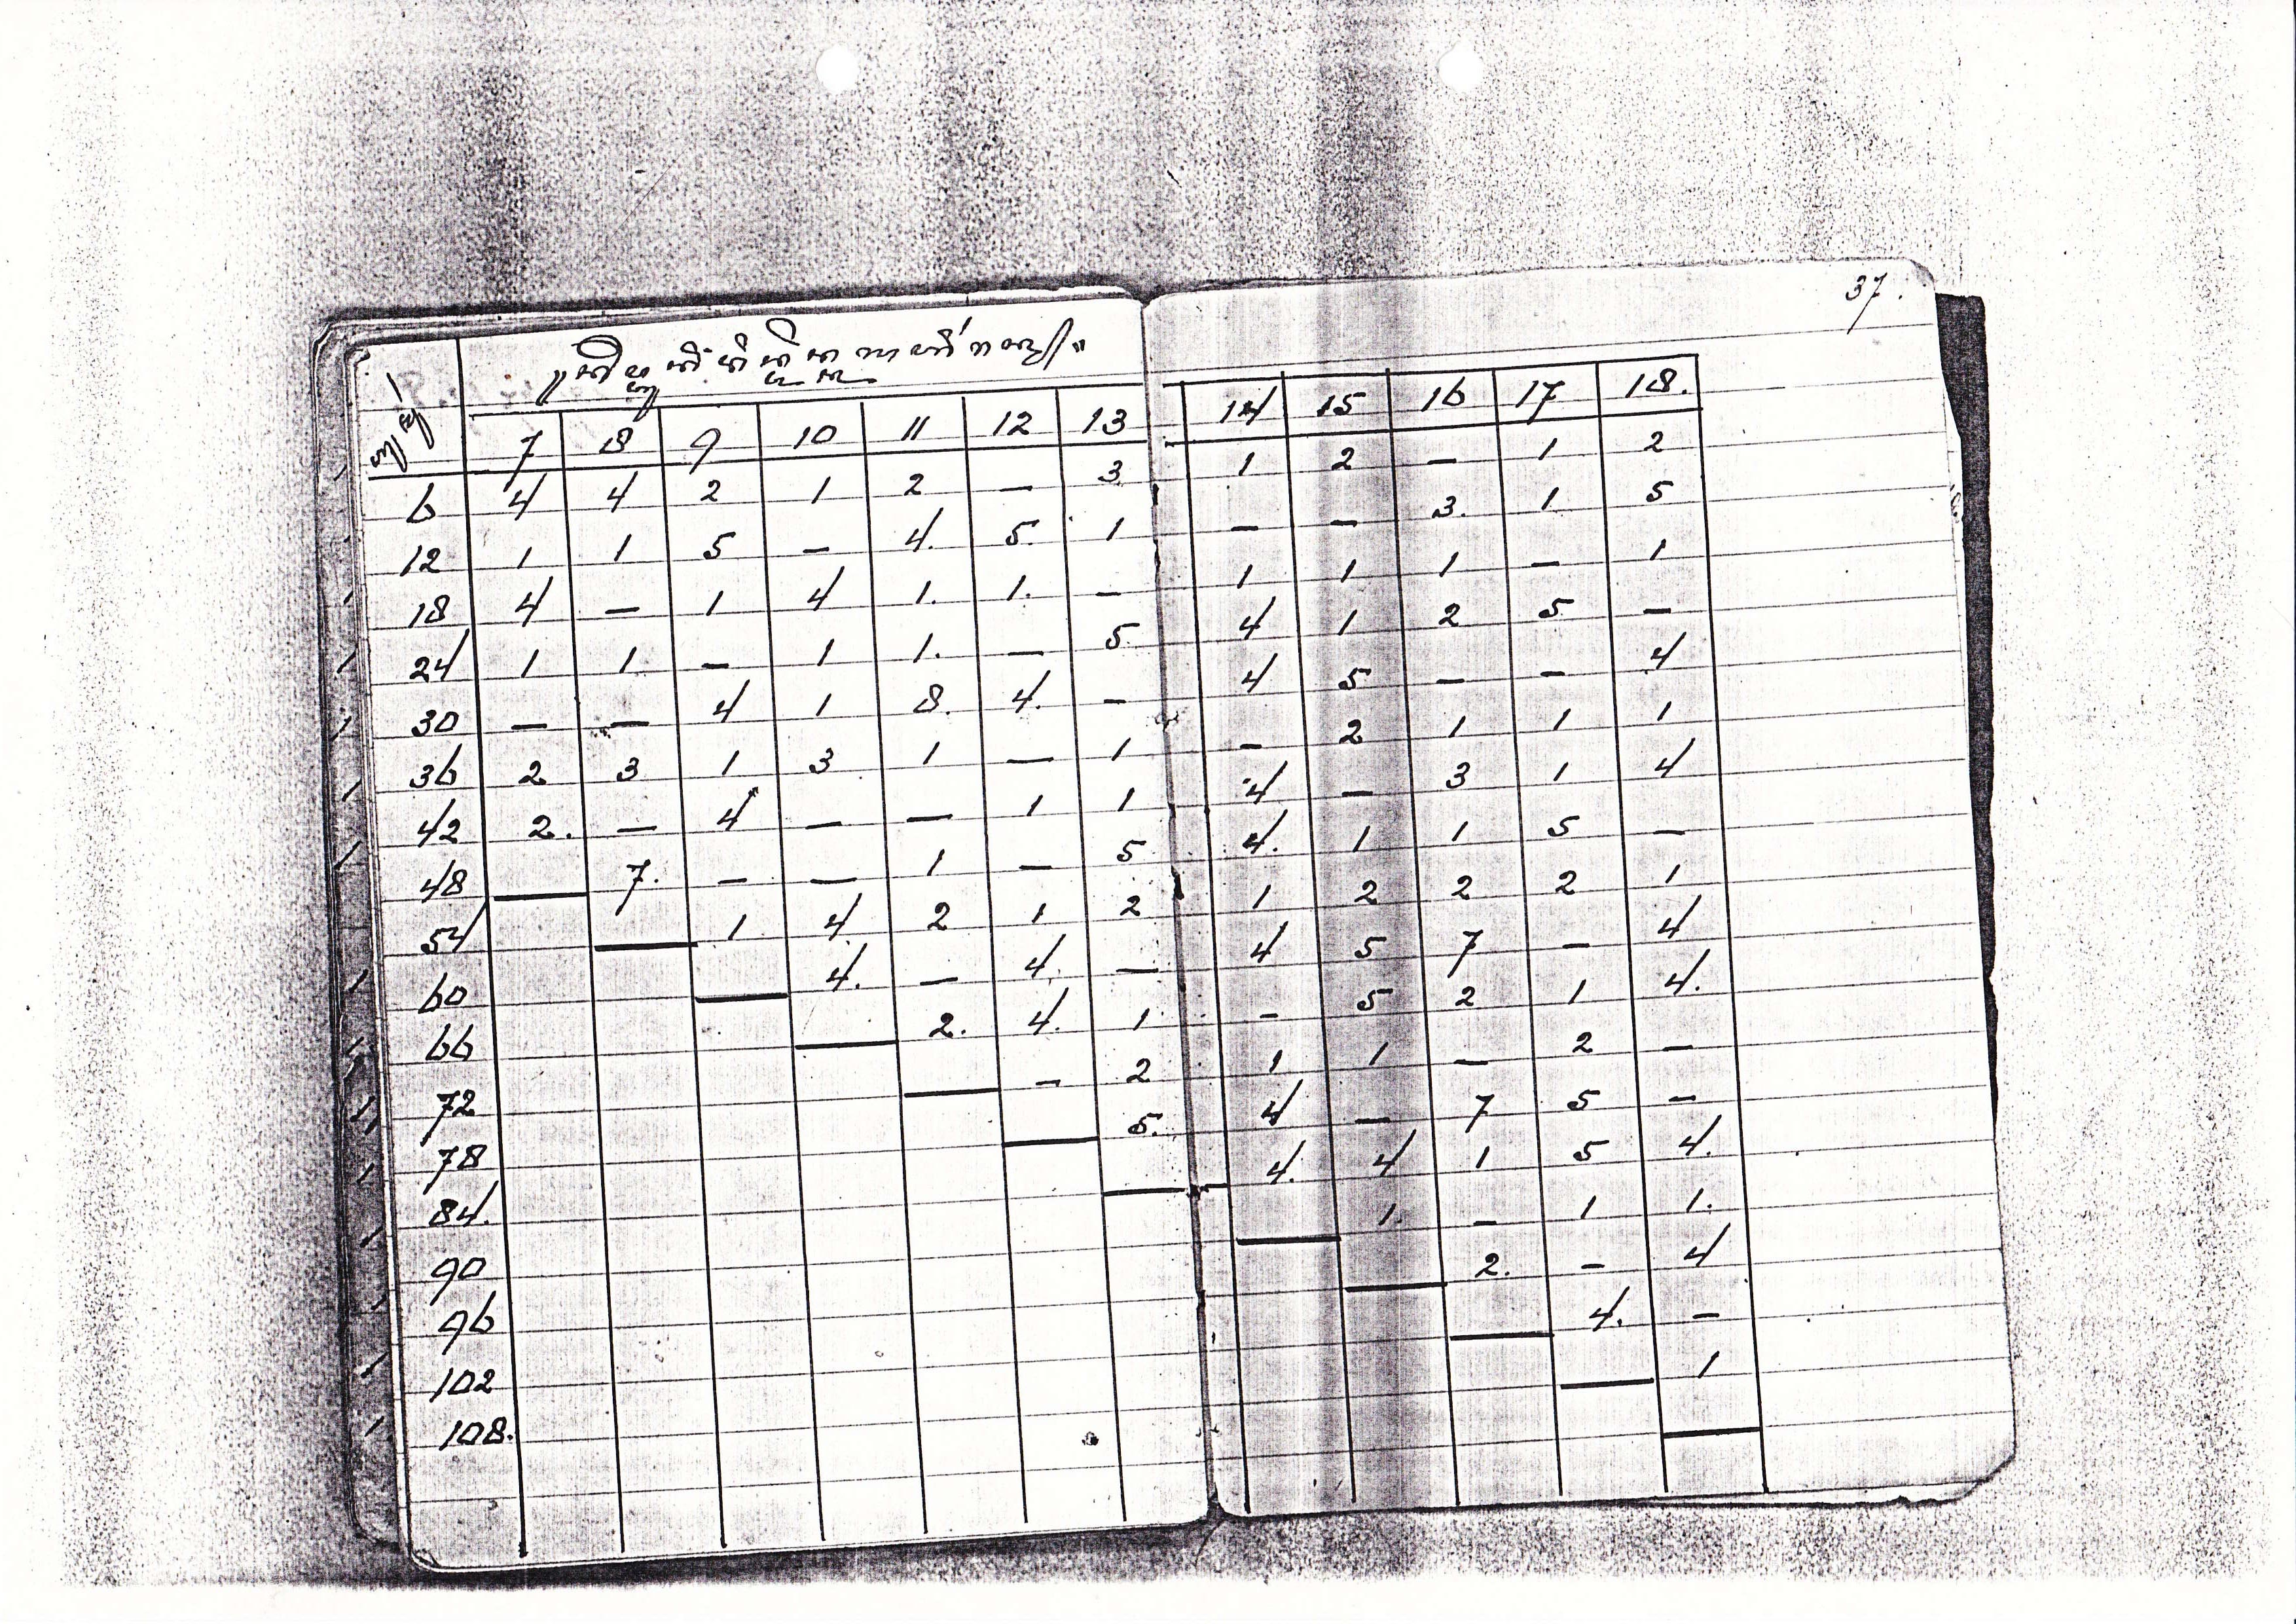 37.
7 8 9 10 11 12 13 14 15 16 17 18.
6 4 4 2 1 2 — 3 1 2 — 1 2
12 1 1 5 — 4. 5. 1 — — 3. 1 5
18 4 — 1 4 1. 1. — 1 1 1 — 1
24 1 1 — 1 1. — 5 4 1 2 5 —
30 — — 4 1 8. 4. — 4 5 — — 4
36 2 3 1 3 1 — 1 — 2 1 1 1
42 2. — 4 — — 1 1 4 — 3 1 4
48 7. — — 1 — 5 4. 1 1 5 —
54 1 4. 2 1 2 1 2 2 2 1
60 4. — 4. — 4 5 7 — 4
66 2. 4. 1 — 5 2 1 4.
72 — 2 1 1 — 2 —
78 5. 4 — 7 5 —
84. 4. 4 1 5 4.
90 1. — 1 1.
96 2. — 4
102 4. —
108. 1